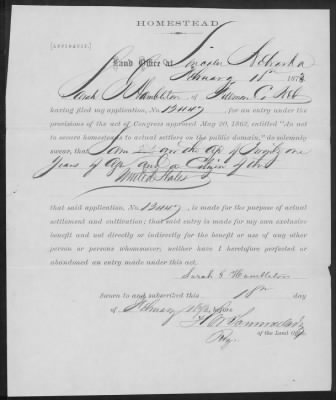 HOMESTEAD.
[AFFIDAVIT.]
Land Office at Lincoln Nebraska
February 18th 1873
I, Sarah J Hambleton of Fillmore C. Neb
having filed my application, No. 12447, for an entry under
the provisions of the act of Congress approved May 20, 1862, entitled "An act
to secure homesteads to actual settlers on the public domain," do solemnly
swear, that I am over the age of Twenty one
Years of Age and a Citizen of the
United States
that said application, No. 12447, is made for the purpose of actual
settlement and cultivation; that said entry is made for my own exclusive
benefit and not directly or indirectly for the benefit or use of any other
person or persons whomsoever; neither have I heretofore perfected or
abandoned an entry made under this act.
Sarah J Hambleton
Sworn to and subscribed this 18th day
of February before
of the Land Office.